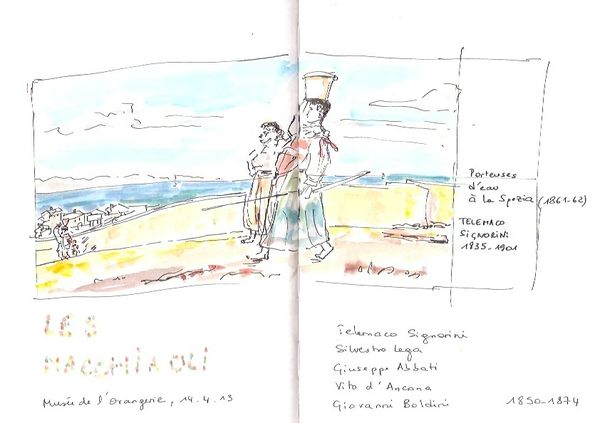 Porteuses
d'eau
à la Spezia (1861-62)
TELEMACO
SIGNORINI
1835-1901
LES
MACCHIAOLI
Musée de l'Orangerie, 14.4.13
Telemaco Signorini
Silvestro Lega
Giuseppe Abbati
Vito d'Ancona
Giovanni Boldini
1850-1874